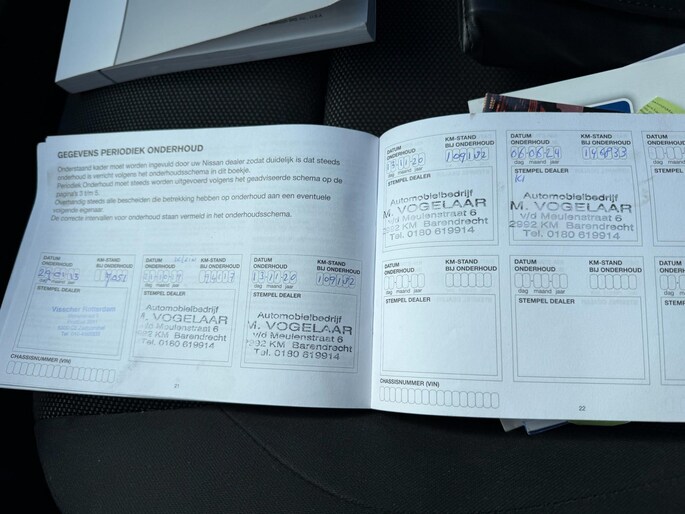 GEGEVENS PERIODIEK ONDERHOUD
Onderstaand kader moet worden ingevuld door uw Nissan dealer zodat duidelijk is dat steeds
onderhoud is verricht volgens het onderhoudsschema in dit boekje.
Periodiek Onderhoud moet steeds worden uitgevoerd volgens het geadviseerde schema op de
pagina's 3 t/m 5.
Overhandig steeds alle bescheiden die betrekking hebben op onderhoud aan een eventuele
volgende eigenaar.
De correcte intervallen voor onderhoud staan vermeld in het onderhoudsschema.
DATUM ONDERHOUD
KM-STAND BIJ ONDERHOUD
29-01-13
dag maand jaar
STEMPEL DEALER
Rotterdam
DATUM ONDERHOUD
KM-STAND BIJ ONDERHOUD
dag maand jaar
STEMPEL DEALER
Automobielbedrijf
M. VOGELAAR
v/d Meulenstraat 6
2992 KM Barendrecht
Tel. 0180 619914
DATUM ONDERHOUD
KM-STAND BIJ ONDERHOUD
13-11-20
109182
dag maand jaar
STEMPEL DEALER
Automobielbedrijf
M. VOGELAAR
v/d Meulenstraat 6
2992 KM Barendrecht
Tel. 0180 619914
CHASSISNUMMER (VIN)
21
DATUM ONDERHOUD
KM-STAND BIJ ONDERHOUD
13-11-20
109182
dag maand jaar
STEMPEL DEALER
Automobielbedrijf
M. VOGELAAR
v/d Meulenstraat 6
2992 KM Barendrecht
Tel. 0180 619914
DATUM ONDERHOUD
KM-STAND BIJ ONDERHOUD
06-06-24
dag maand jaar
STEMPEL DEALER
Automobielbedrijf
M. VOGELAAR
v/d Meulenstraat 6
2992 KM Barendrecht
Tel. 0180 619914
DATUM ONDERHOUD
KM-STAND BIJ ONDERHOUD
dag maand jaar
STEMPEL DEALER
DATUM ONDERHOUD
KM-STAND BIJ ONDERHOUD
dag maand jaar
STEMPEL DEALER
CHASSISNUMMER (VIN)
22